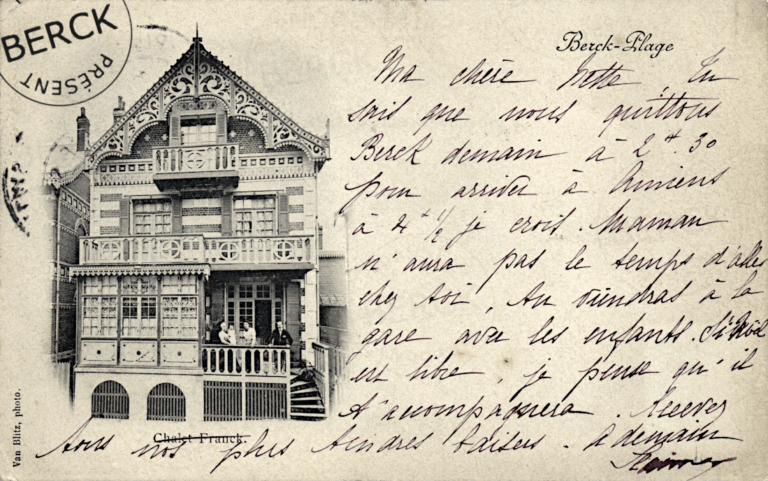 BERCK
PRÉSENT
Berck-Plage
Ma chère Nette, Tu
sais que nous quittons
Berck demain à 2h.30
pour arriver à Amiens
à 4h 1/2 je crois. Maman
n'aura pas le temps d'aller
chez toi, tu viendras à la
gare avec les enfants. Si
est libre, je pense qu'il
t'accompagnera. Recevez
tous nos plus tendres baisers. A demain
Chalet Franck.
Van Blitz, photo.